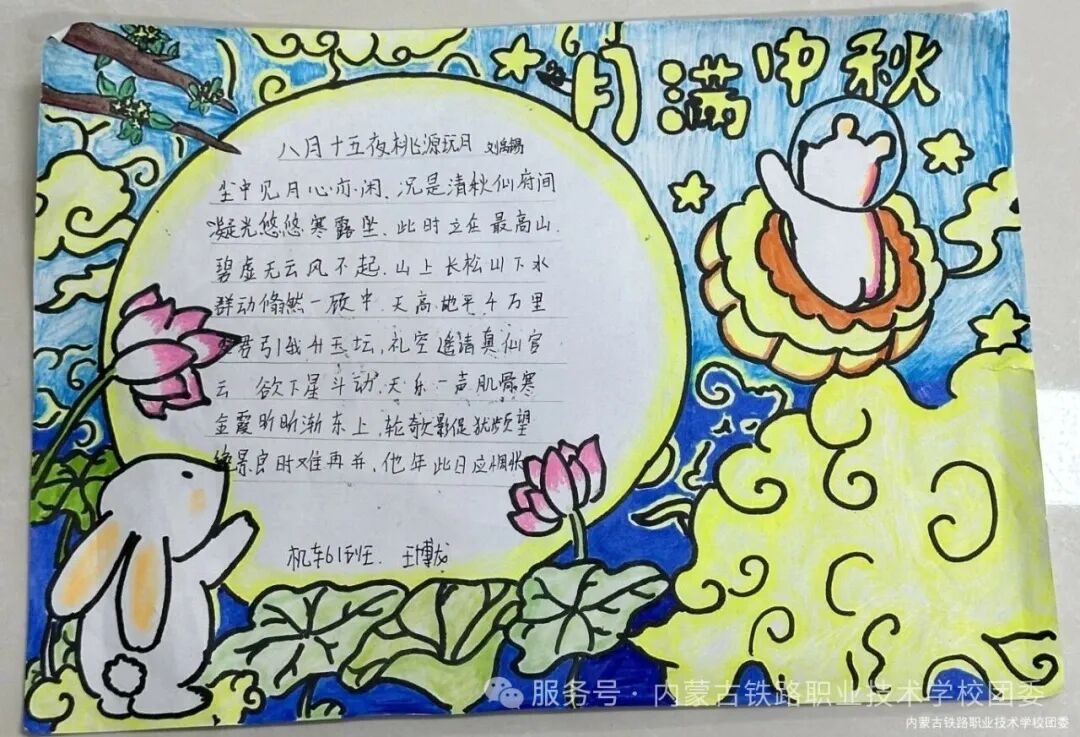 月满中秋
八月十五夜桃源玩月 刘禹锡
尘中见月心亦闲、况是清秋仙府间
凝光悠悠寒露坠、此时立在最高山、
碧虚无云风不起、山上长松山下水
群动翛然一顾中 天高地平千万里
君引我升玉坛，礼空遥请真仙官
云 欲下星斗动，天乐一声肌骨寒
金霞昕昕渐东上，轮欹影促犹频望
景良时难再并，他年此日应惆怅
机车61班 王博龙
服务号·内蒙古铁路职业技术学校团委
内蒙古铁路职业技术学校团委